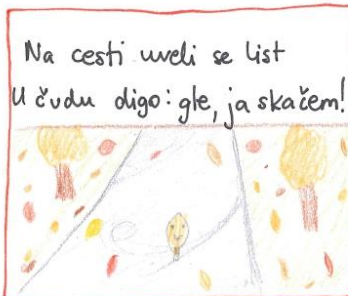 Na cesti uveli se list
U čudu digo: gle, ja skačem!